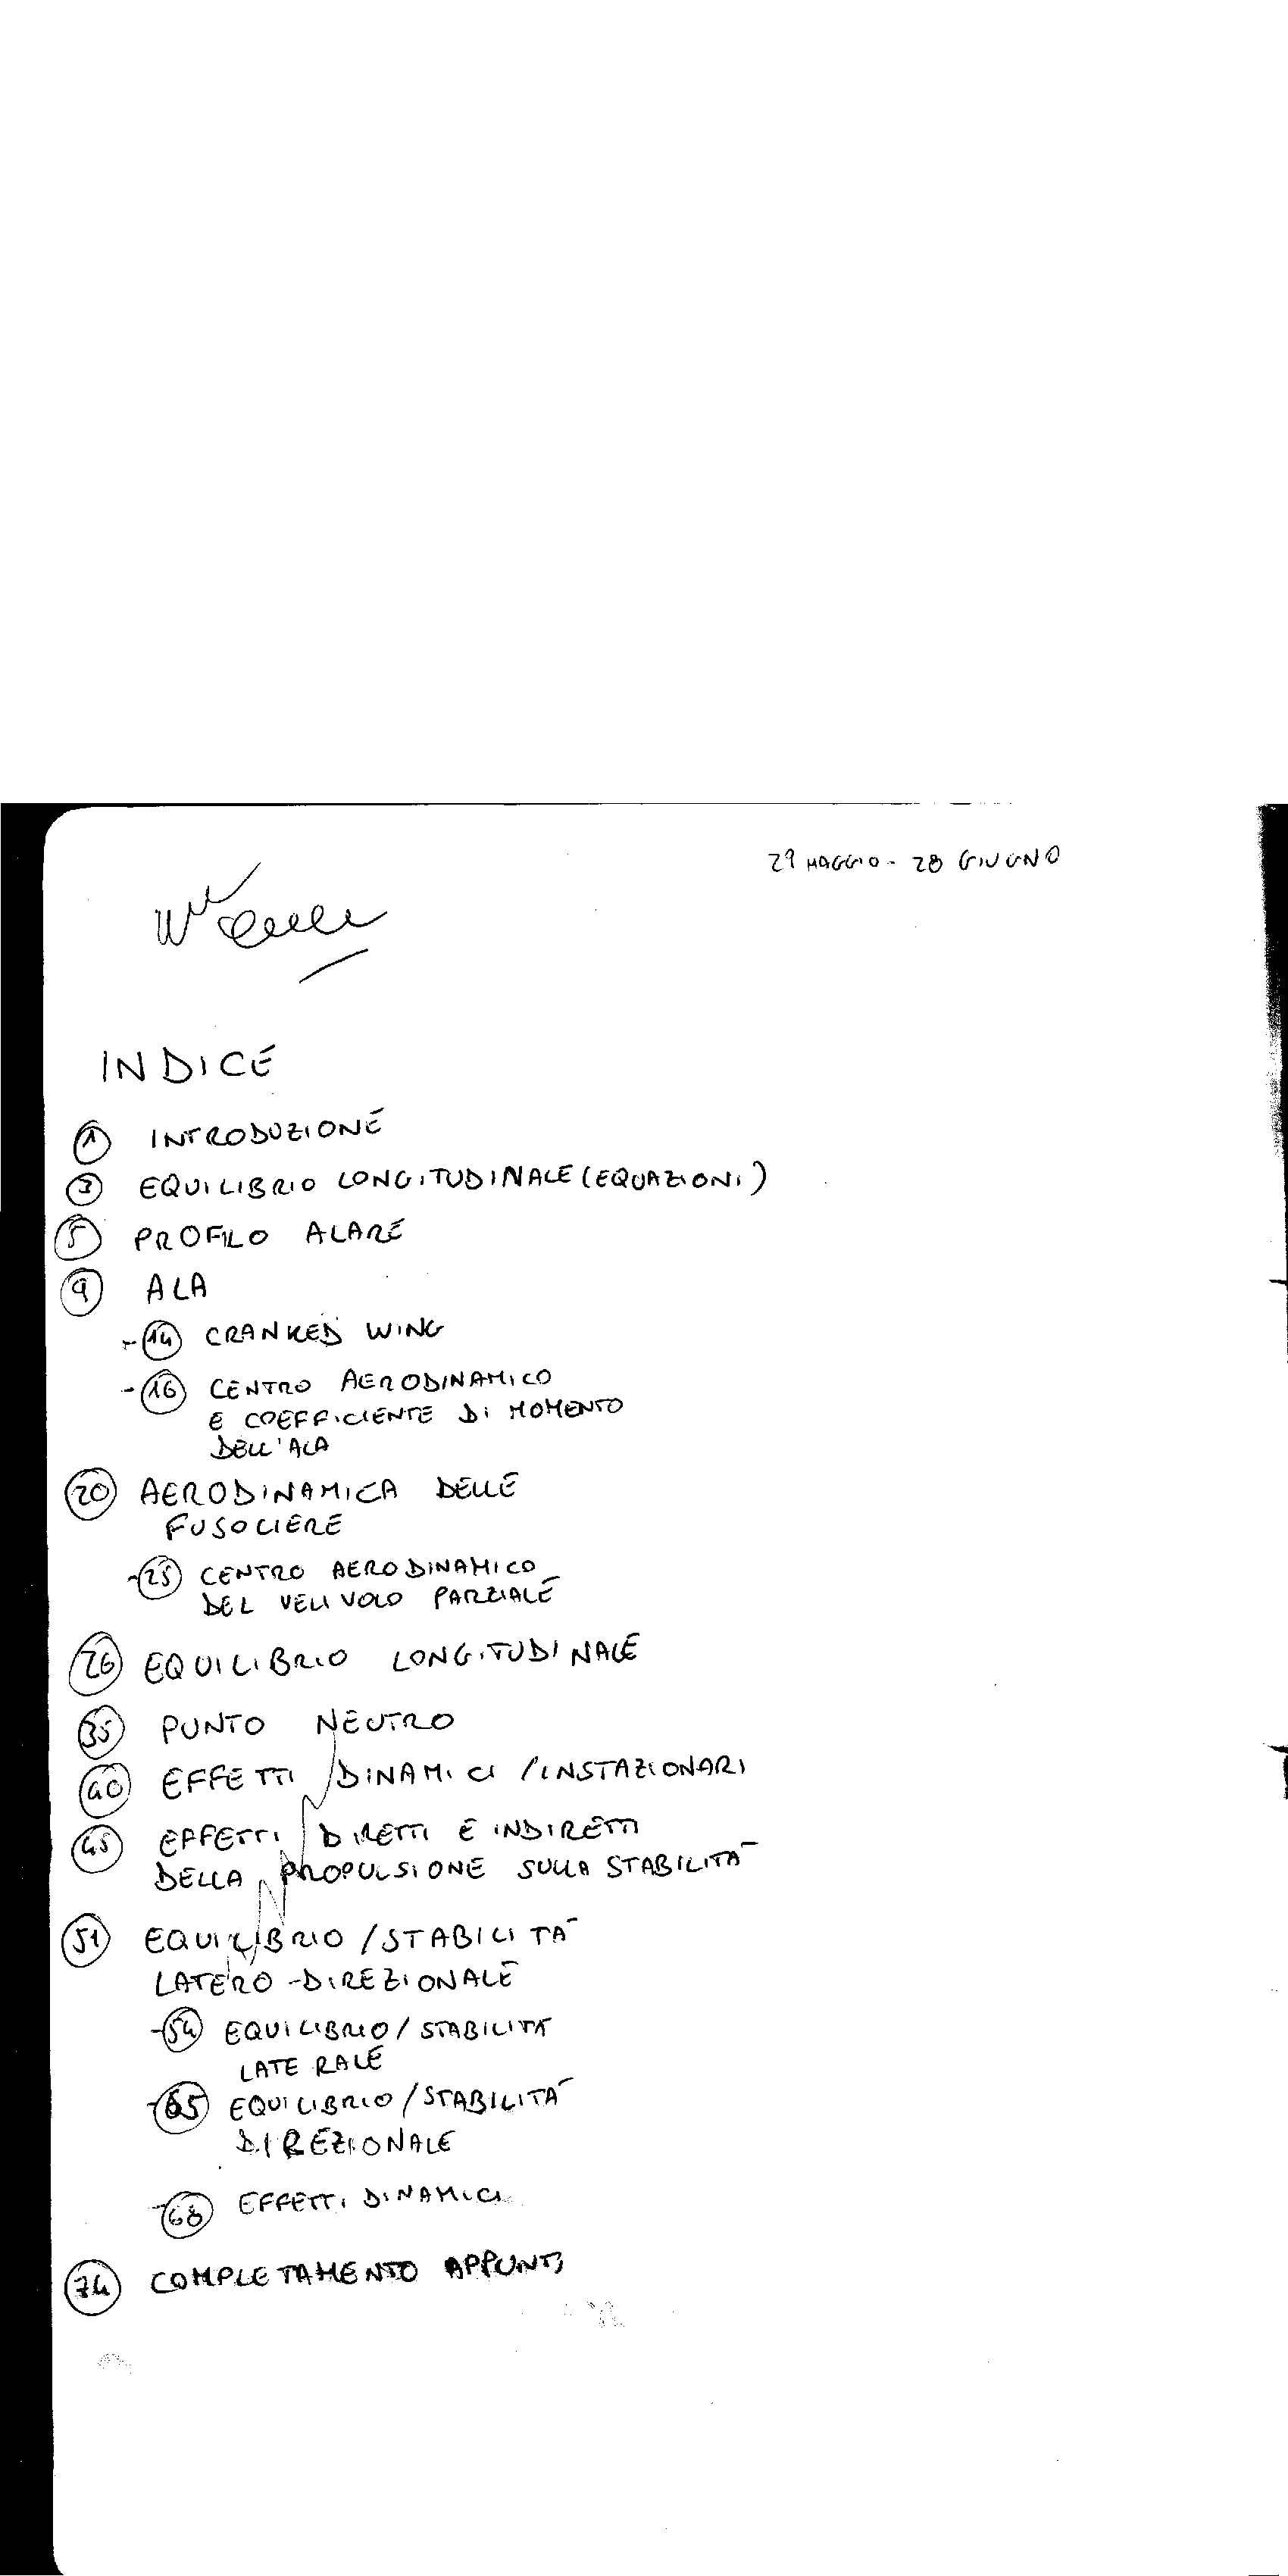 29 MAGGIO - 28 GIUGNO
INDICE
1 INTRODUZIONE
3 EQUILIBRIO LONGITUDINALE (EQUAZIONI)
5 PROFILO ALARE
9 ALA
- 14 CRANKED WING
- 16 CENTRO AERODINAMICO
E COEFFICIENTE DI MOMENTO
DELL'ALA
20 AERODINAMICA DELLE
FUSOLIERE
- 25 CENTRO AERODINAMICO
DEL VELIVOLO PARZIALE
26 EQUILIBRIO LONGITUDINALE
35 PUNTO NEUTRO
40 EFFETTI DINAMICI / INSTAZIONARI
45 EFFETTI DIRETTI E INDIRETTI
DELLA PROPULSIONE SULLA STABILITÀ
51 EQUILIBRIO / STABILITÀ
LATERO - DIREZIONALE
- 54 EQUILIBRIO / STABILITÀ
LATERALE
- 65 EQUILIBRIO / STABILITÀ
DIREZIONALE
- 68 EFFETTI DINAMICI
74 COMPLETAMENTO APPUNTI